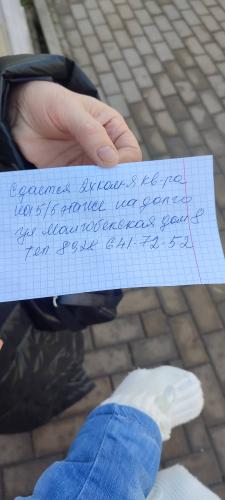 Сдается 2х ком-я кв-ра
на 5/5 этаже на долго
ул Малгобекская дом 8
тел 8928 641-72-52